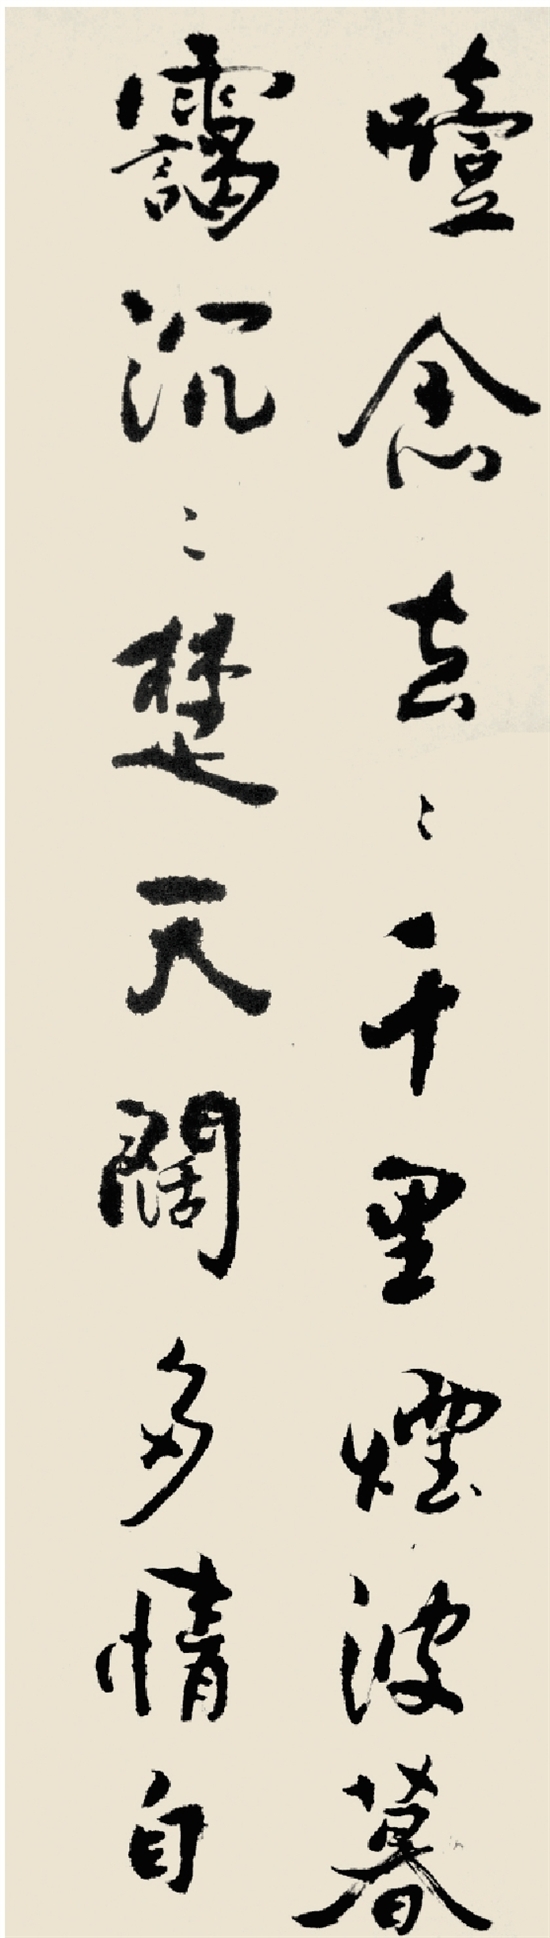 噎念去〻千里煙波暮
靄沉〻楚天闊多情自